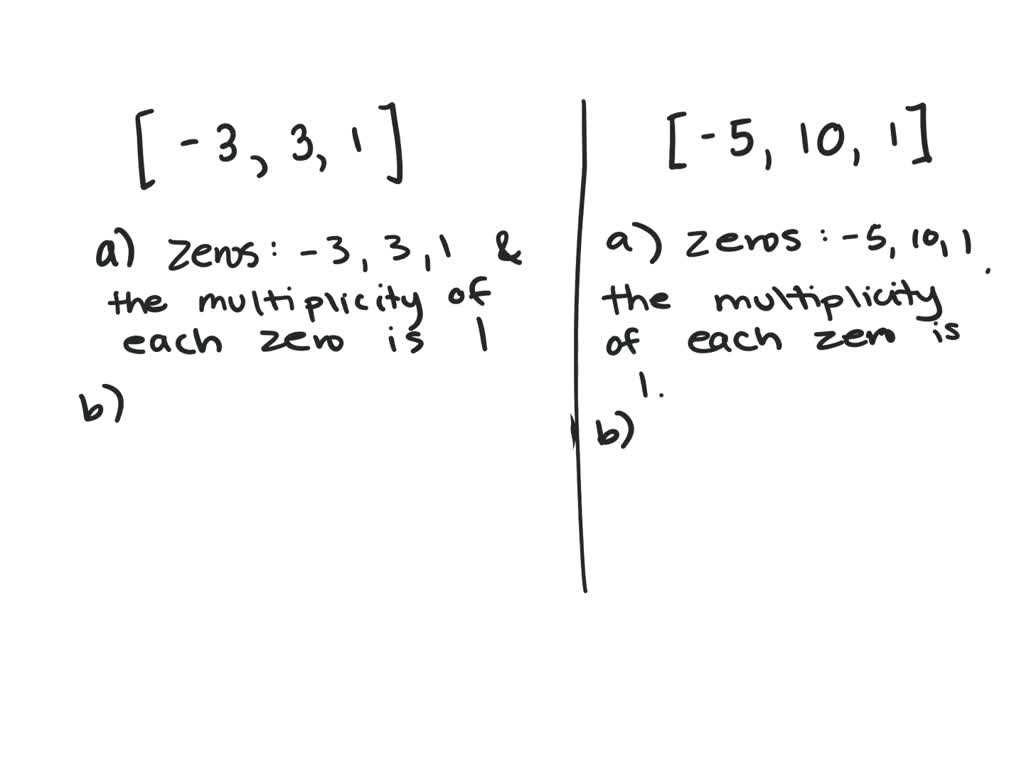 [ -3, 3, 1 ]
a) zeros: -3, 3, 1 &
the multiplicity of
each zero is 1
b)
[ -5, 10, 1 ]
a) zeros: -5, 10, 1.
the multiplicity
of each zero is
1.
b)